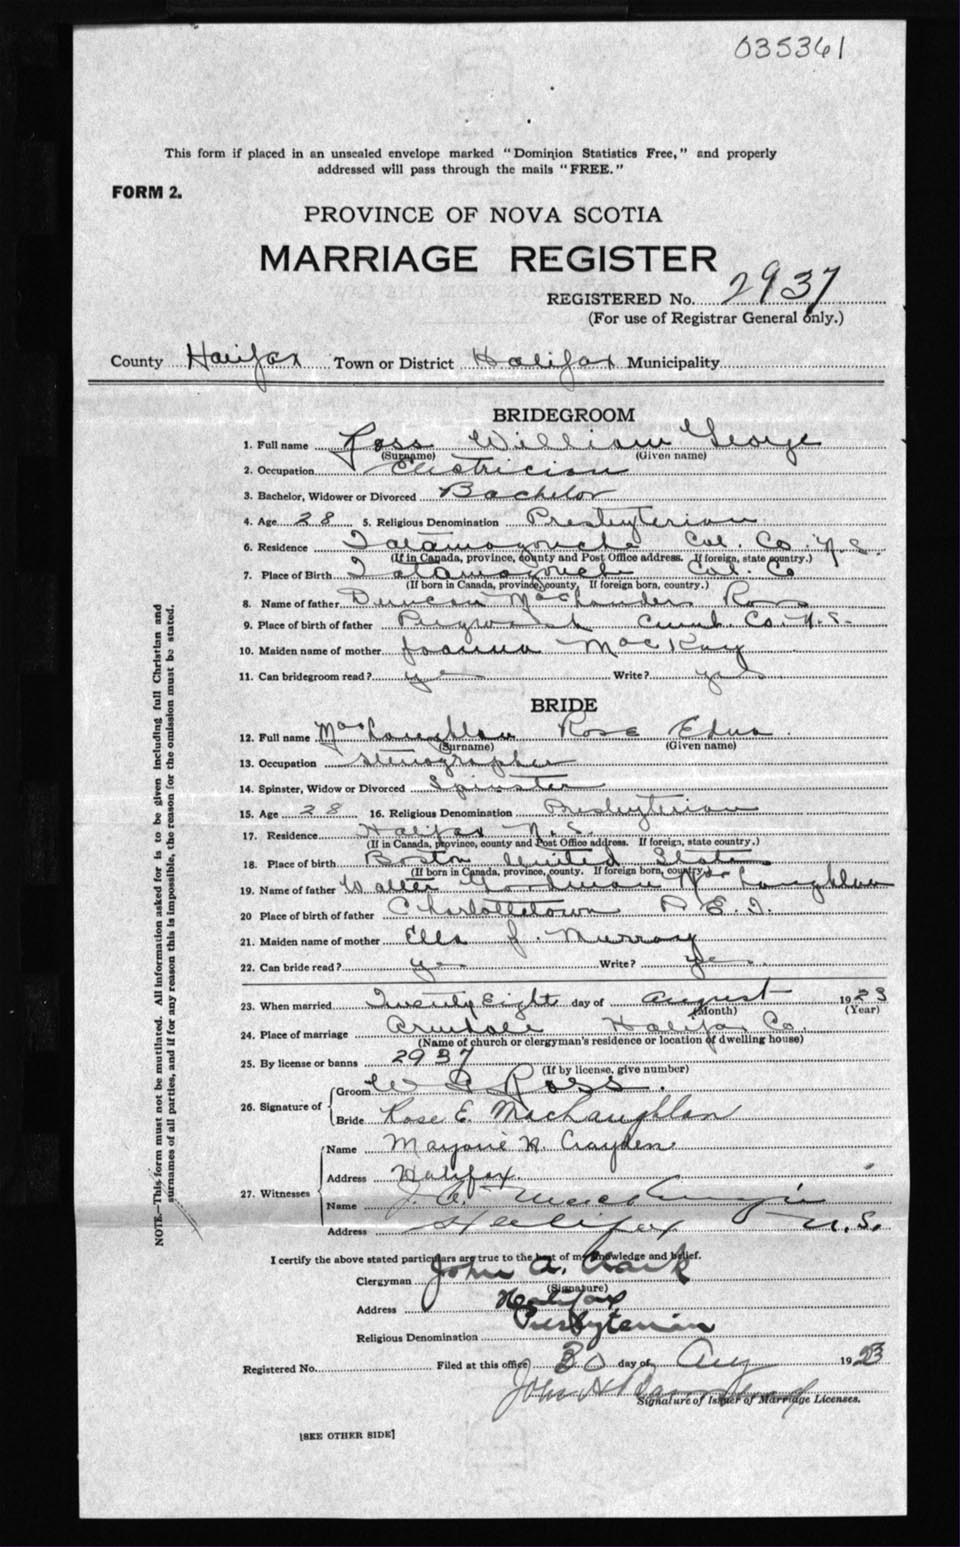 035361
This form if placed in an unsealed envelope marked "Dominion Statistics Free," and properly
addressed will pass through the mails "FREE."
FORM 2.
PROVINCE OF NOVA SCOTIA
MARRIAGE REGISTER
REGISTERED No. 2937
(For use of Registrar General only.)
County Halifax Town or District Halifax Municipality
BRIDEGROOM
1. Full name Ross William George
(Surname) (Given name)
2. Occupation Electrician
3. Bachelor, Widower or Divorced Bachelor
4. Age 28 5. Religious Denomination Presbyterian
6. Residence Tatamagouche Col. Co. N.S.
(If in Canada, province, county and Post Office address. If foreign, state country.)
7. Place of Birth Tatamagouche Col. Co
(If born in Canada, province, county. If foreign born, country.)
8. Name of father Duncan Ross
9. Place of birth of father Pugwash Cumb. Co. N.S.
10. Maiden name of mother Joanna MacKay
11. Can bridegroom read? yes Write? yes
BRIDE
12. Full name MacLaughlan Rose Edna
(Surname) (Given name)
13. Occupation Stenographer
14. Spinster, Widow or Divorced Spinster
15. Age 28 16. Religious Denomination Presbyterian
17. Residence Halifax N.S.
(If in Canada, province, county and Post Office address. If foreign, state country.)
18. Place of birth Boston United States
(If born in Canada, province, county. If foreign born, country.)
19. Name of father Walter MacLaughlan
20 Place of birth of father Charlottetown P.E.I.
21. Maiden name of mother Ella J. Murray
22. Can bride read? yes Write? yes
23. When married Twenty Eight day of August 1923
(Month) (Year)
24. Place of marriage Armdale Halifax Co.
(Name of church or clergyman's residence or location of dwelling house)
25. By license or banns 2937
(If by license, give number)
26. Signature of Groom W G Ross.
Bride Rose E. MacLaughlan
27. Witnesses Name Marjorie H. Crayden
Address Halifax
Name J. A.
Address Halifax N.S.
I certify the above stated particulars are true to the best of my knowledge and belief.
Clergyman John A. Clark
(Signature)
Address Halifax
Religious Denomination Presbyterian
Registered No. Filed at this office 30 day of Aug 1923
John H
Signature of Issuer of Marriage Licenses.
[SEE OTHER SIDE]
NOTE.—This form must not be mutilated. All information asked for is to be given including full Christian and
surnames of all parties, and if for any reason this is impossible, the reason for the omission must be stated.